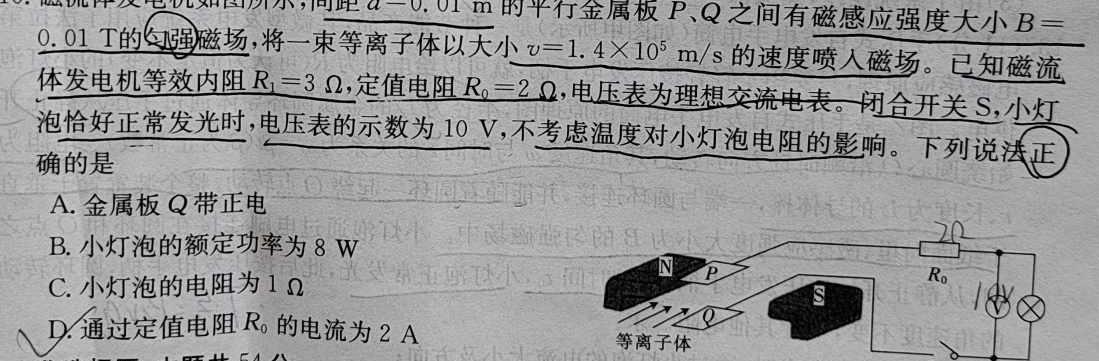 磁流体发电机如图所示,间距 d=0.01 m 的平行金属板 P、Q 之间有磁感应强度大小 B=
0.01 T的匀强磁场,将一束等离子体以大小 v=1.4×10⁵ m/s 的速度喷入磁场。已知磁流
体发电机等效内阻 R₁=3 Ω,定值电阻 R₀=2 Ω,电压表为理想交流电表。闭合开关 S,小灯
泡恰好正常发光时,电压表的示数为 10 V,不考虑温度对小灯泡电阻的影响。下列说法正
确的是
A. 金属板 Q 带正电
B. 小灯泡的额定功率为 8 W
C. 小灯泡的电阻为 1 Ω
D. 通过定值电阻 R₀ 的电流为 2 A
2Ω
N
P
R₀
S
10V
V
Q
等离子体